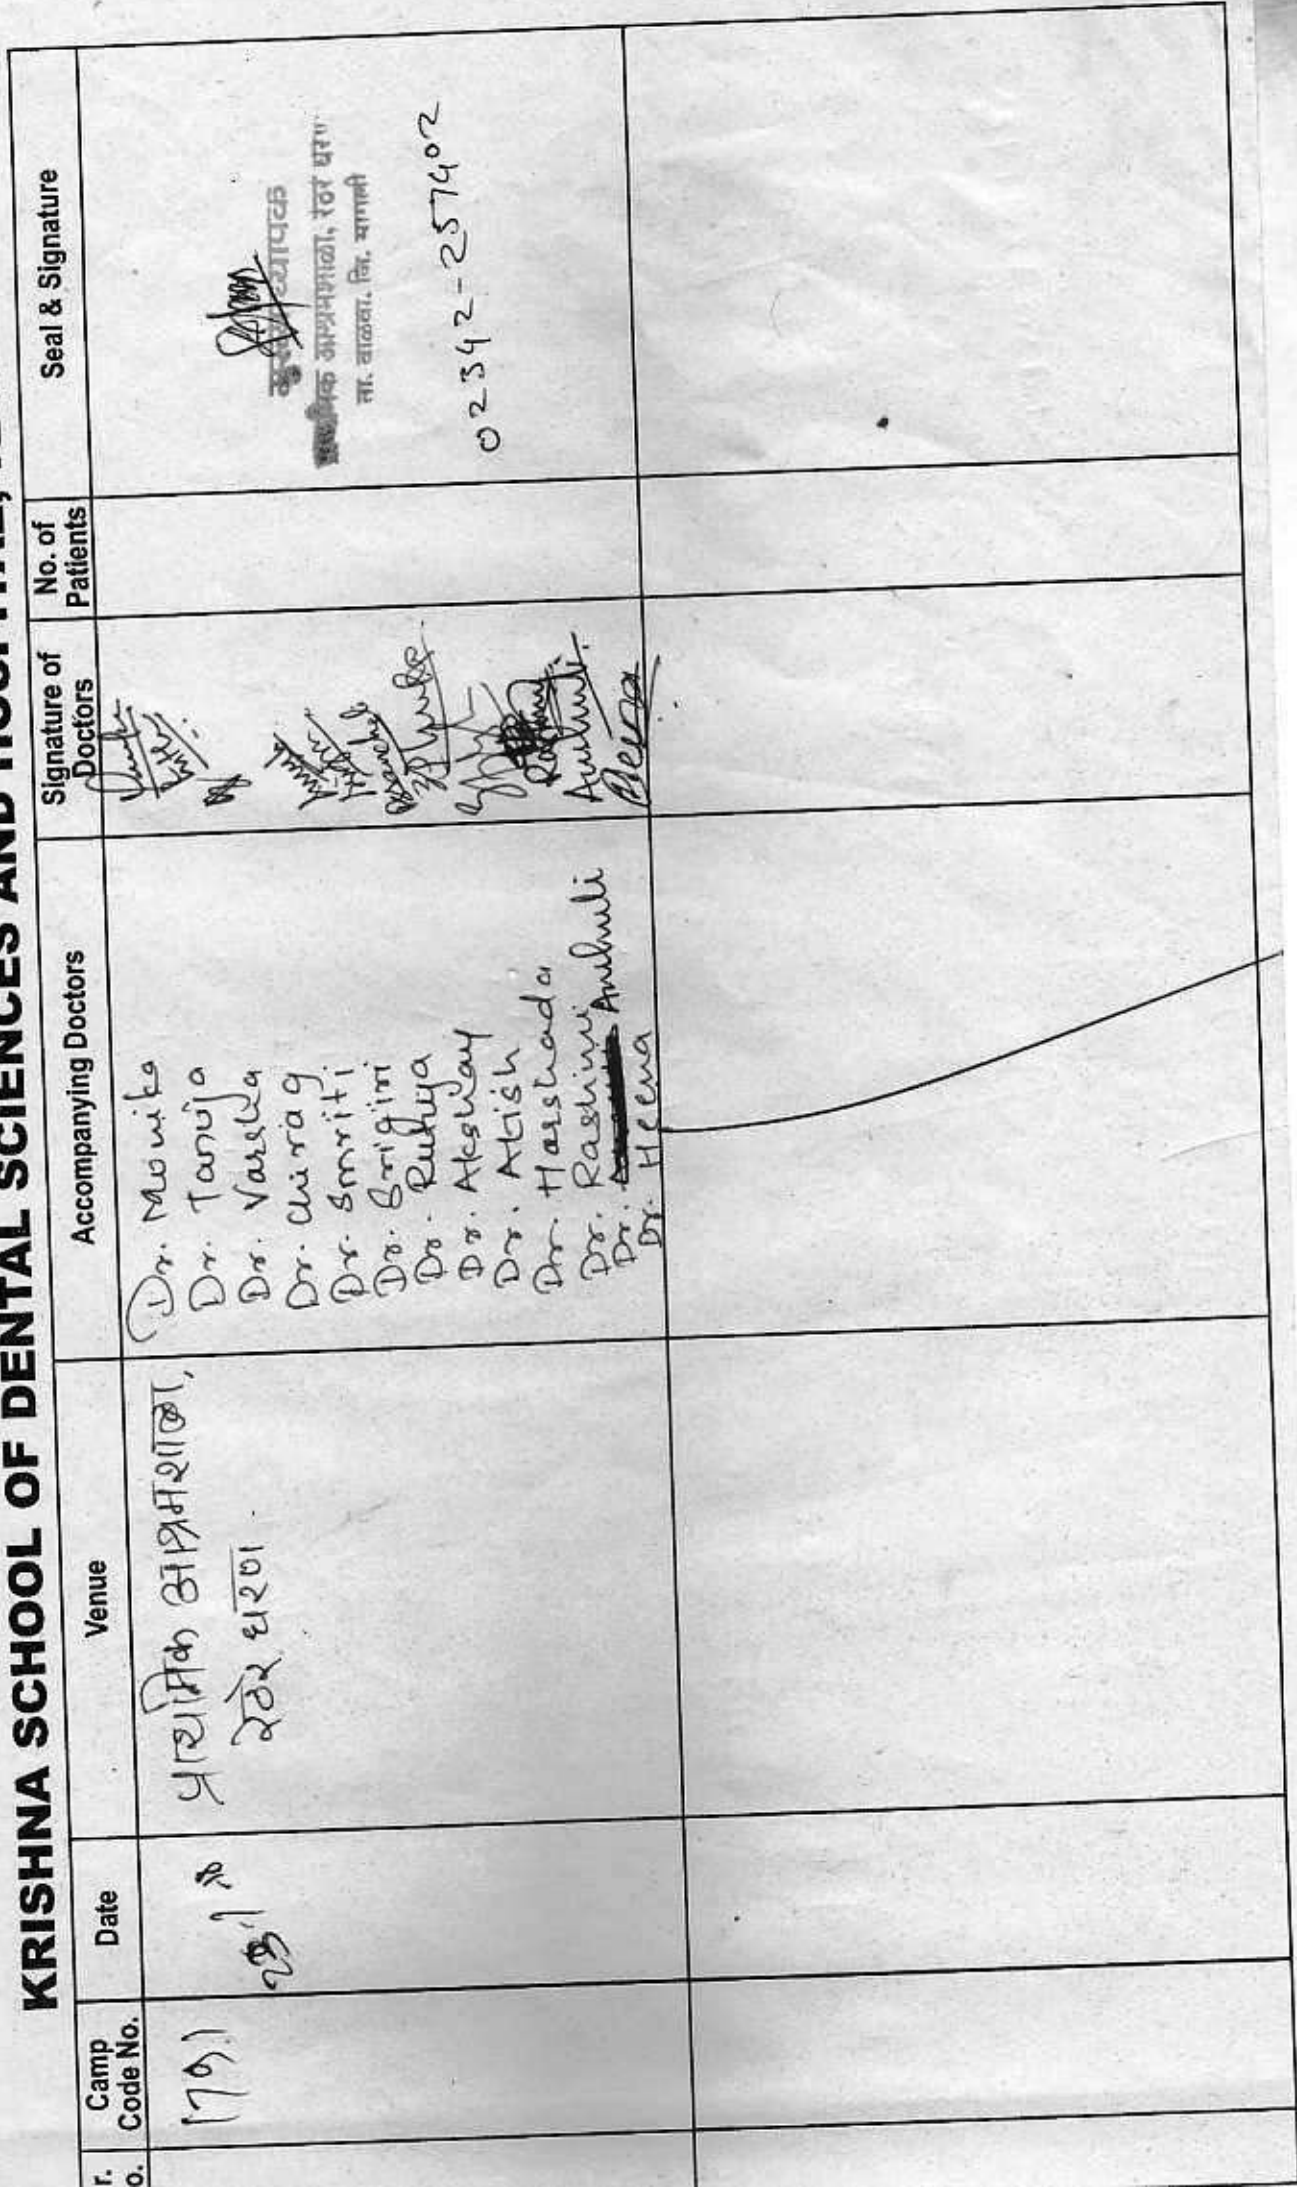 KRISHNA SCHOOL OF DENTAL SCIENCES AND
r.
o.
Camp
Code No.
Date
Venue
Accompanying Doctors
Signature of
Doctors
No. of
Patients
Seal & Signature
प्राथमिक आश्रमशाळा,
रेठरे धरण.
Dr. Monika
Dr. Tanuja
Dr. Varsha
Dr. Chirag
Dr. Smriti
Dr. Srigiri
Dr. Rutuja
Dr. Akshay
Dr. Atish
Dr. Harshada
Dr. Rashmi
Dr. Anhuli
Dr. Heena
Anhuli
Heena
मुख्याध्यापक
आश्रमशाळा, रेठरे धरण
ता. वाळवा. जि. सांगली
02342-257402